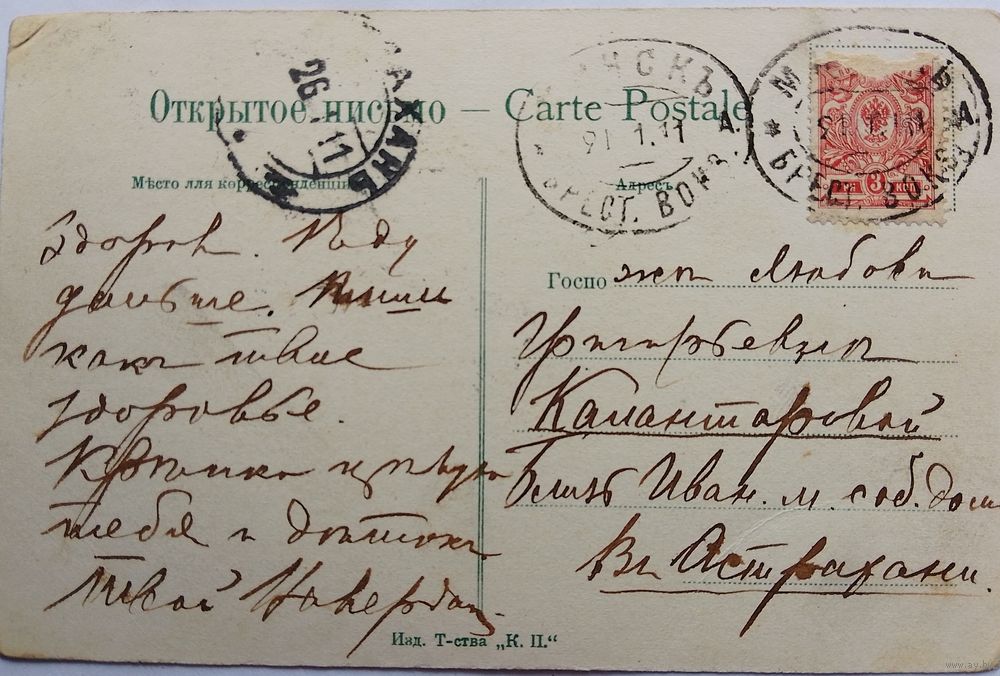 Открытое письмо — Carte Postale
Мѣсто для корреспонденціи
Адресъ
АХАНЬ
26 11
НСКЪ
1.11 А.
БРЕСТ. ВОКЗ.
М Ъ
А
БРЕСТ. ВОКЗ.
3 КОП.
Здоров. Ѣду
дальше. Пиши
какъ твое
здоровье.
Крѣпко цѣлую
тебя и деток
Твой
Госпожи Любови
Григорьевны
Калантаровой
близъ Иван. м. соб. дом
Въ Астрахани.
Изд. Т-ства „К. П.“
www.ay.by